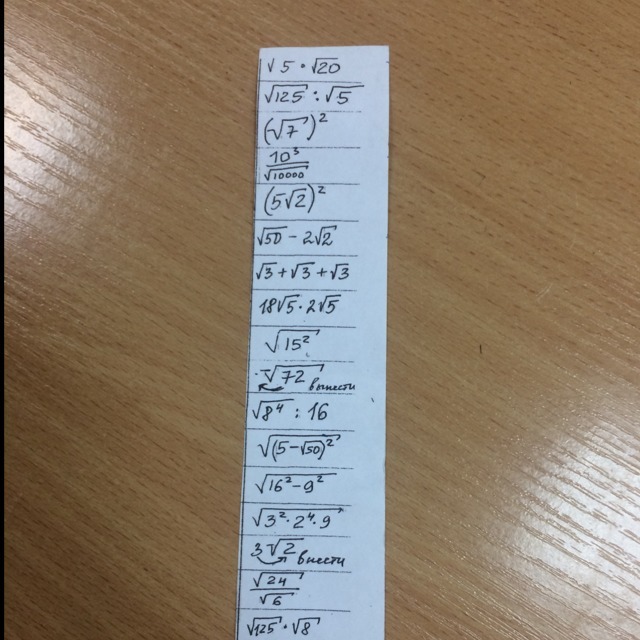 √5 · √20
√125 : √5
(√7)²
10³/√10000
(5√2)²
√50 − 2√2
√3 + √3 + √3
18√5 · 2√5
√15²
√72 вынести
√8⁴ : 16
√(5−√50)²
√16²−9²
√3²·2⁴·9
3√2 внести
√24/√6
√125 · √8